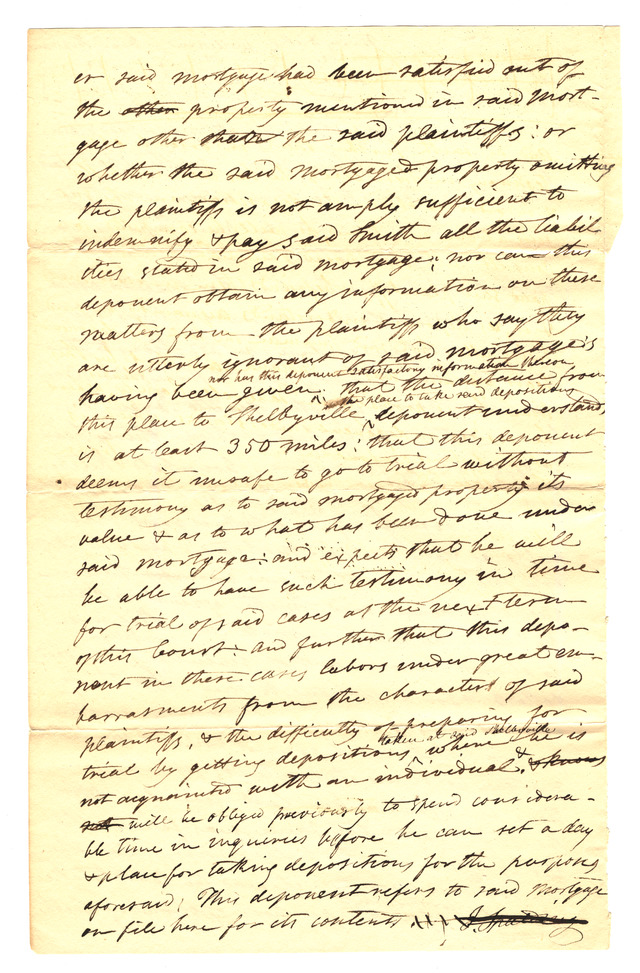 er said mortgage had been satisfied out of
the other property mentioned in said Mort-
gage other than the said plaintiffs: or
whether the said mortgaged property omitting
the plaintiffs is not amply sufficient to
indemnify & pay said Smith all the liabil
ities stated in said mortgage; nor can this
deponent obtain any information on these
matters from the plaintiffs who say they
are utterly ignorant of said mortgage's
nor has this deponent satisfactory information thereon
having been given; that the distance from
the place to take said depositions
this place to Shelbyville, deponent understands,
is at least 350 miles: that this deponent
deems it unsafe to go to trial without
testimony as to said mortgaged property its
value & as to what has been done under
said mortgage: and expects that he will
be able to have such testimony in time
for trial of said cases at the next term
of this Court: and further that this depo-
nent in these cases labors under great em-
barrassments from the character of said
plaintiffs, & the difficulty of preparing for
taken at said Shelbyville
trial by getting depositions where he is
not acquainted with an individual, & & knows
not will be obliged previously to spend considera-
ble time in inquiries before he can set a day
& place for taking depositions for the purposes
aforesaid; This deponent refers to said Mortgage
on file here for its contents. J. Spalding